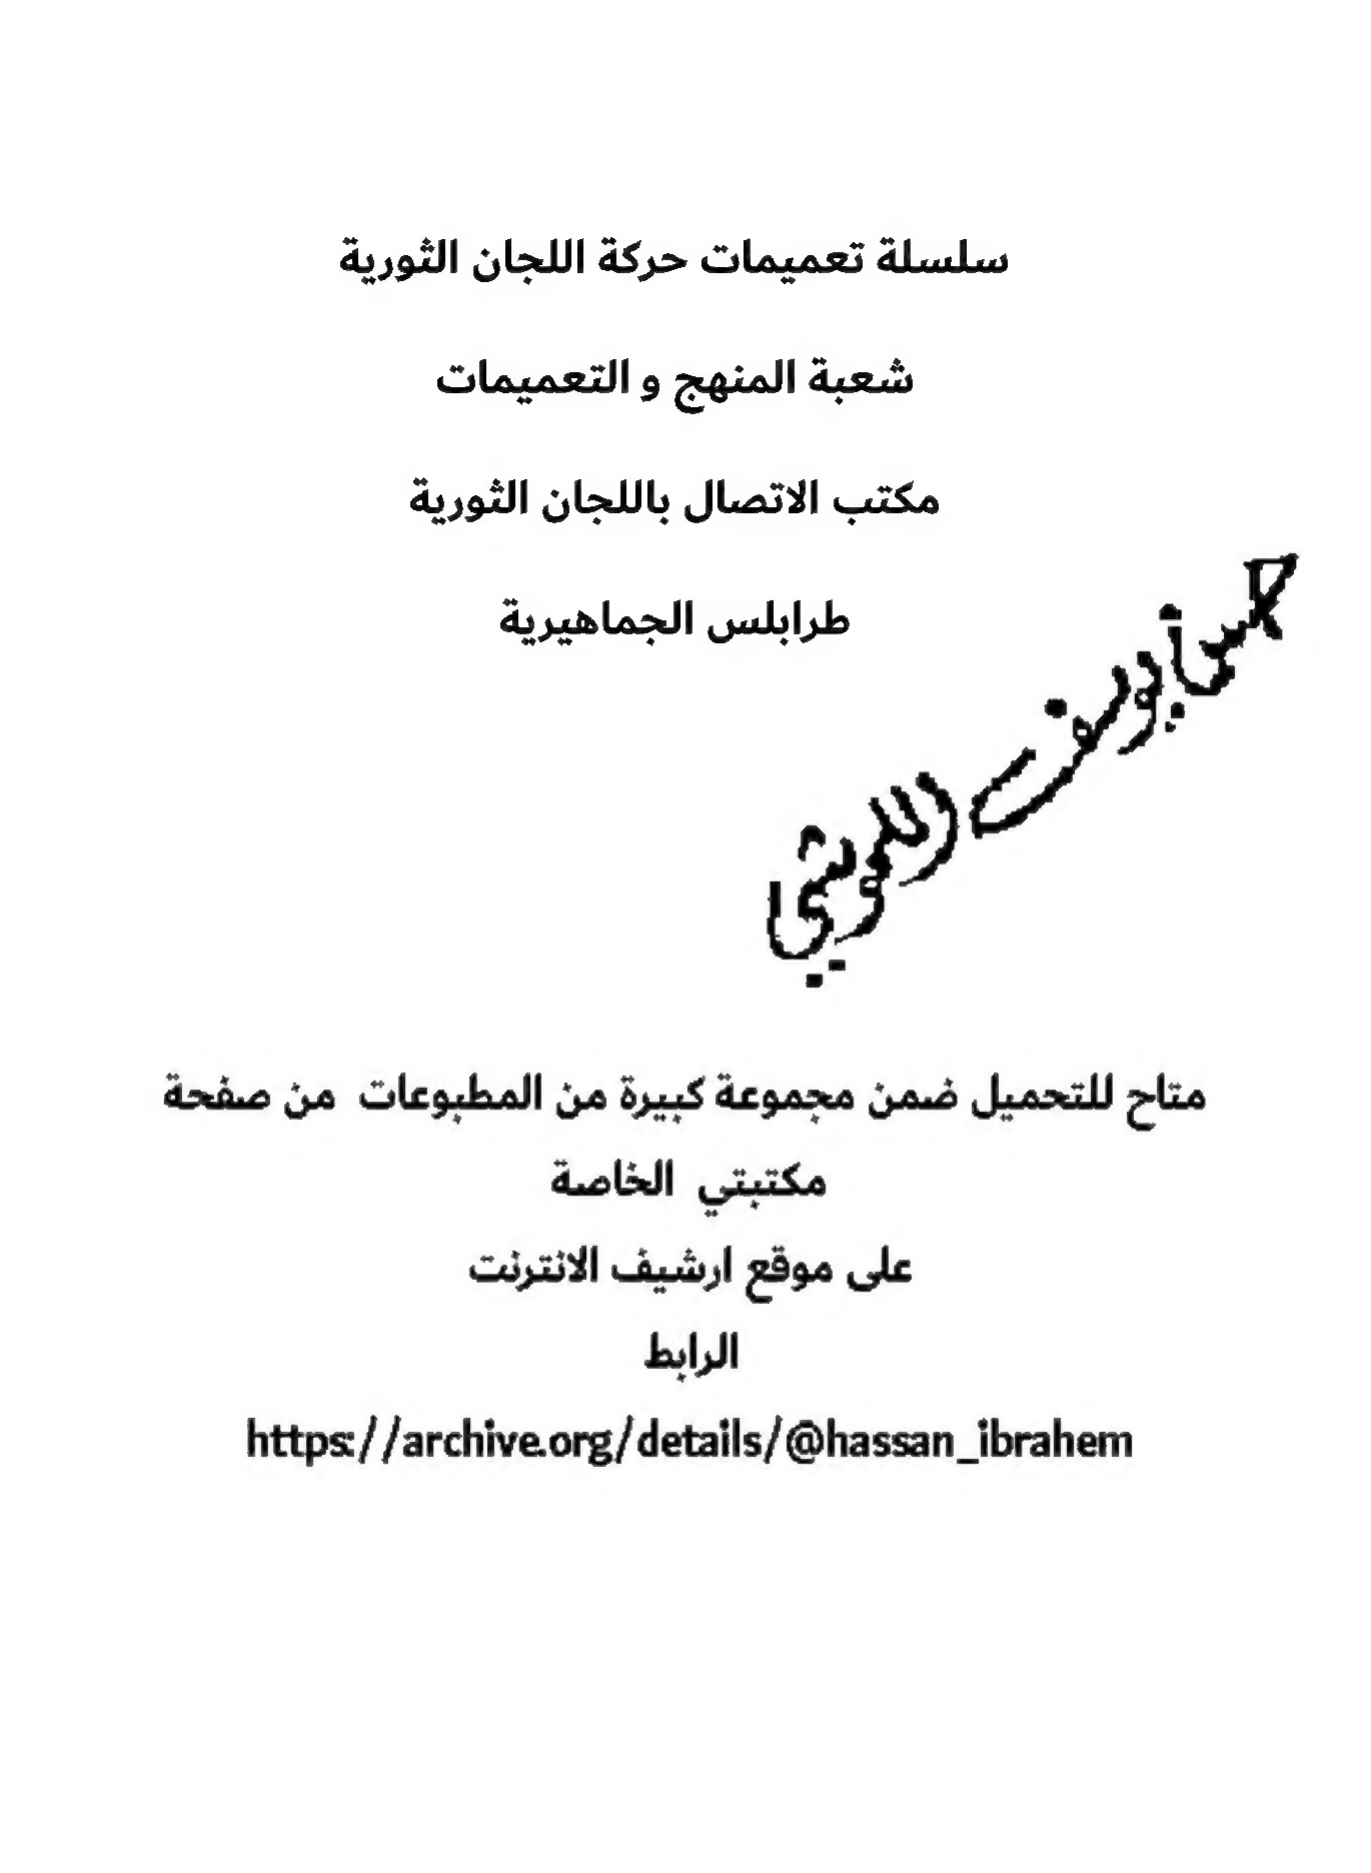 سلسلة تعميمات حركة اللجان الثورية
شعبة المنهج و التعميمات
مكتب الاتصال باللجان الثورية
طرابلس الجماهيرية
يوسف
متاح للتحميل ضمن مجموعة كبيرة من المطبوعات من صفحة
مكتبتي الخاصة
على موقع ارشيف الانترنت
الرابط
https://archive.org/details/@hassan_ibrahem